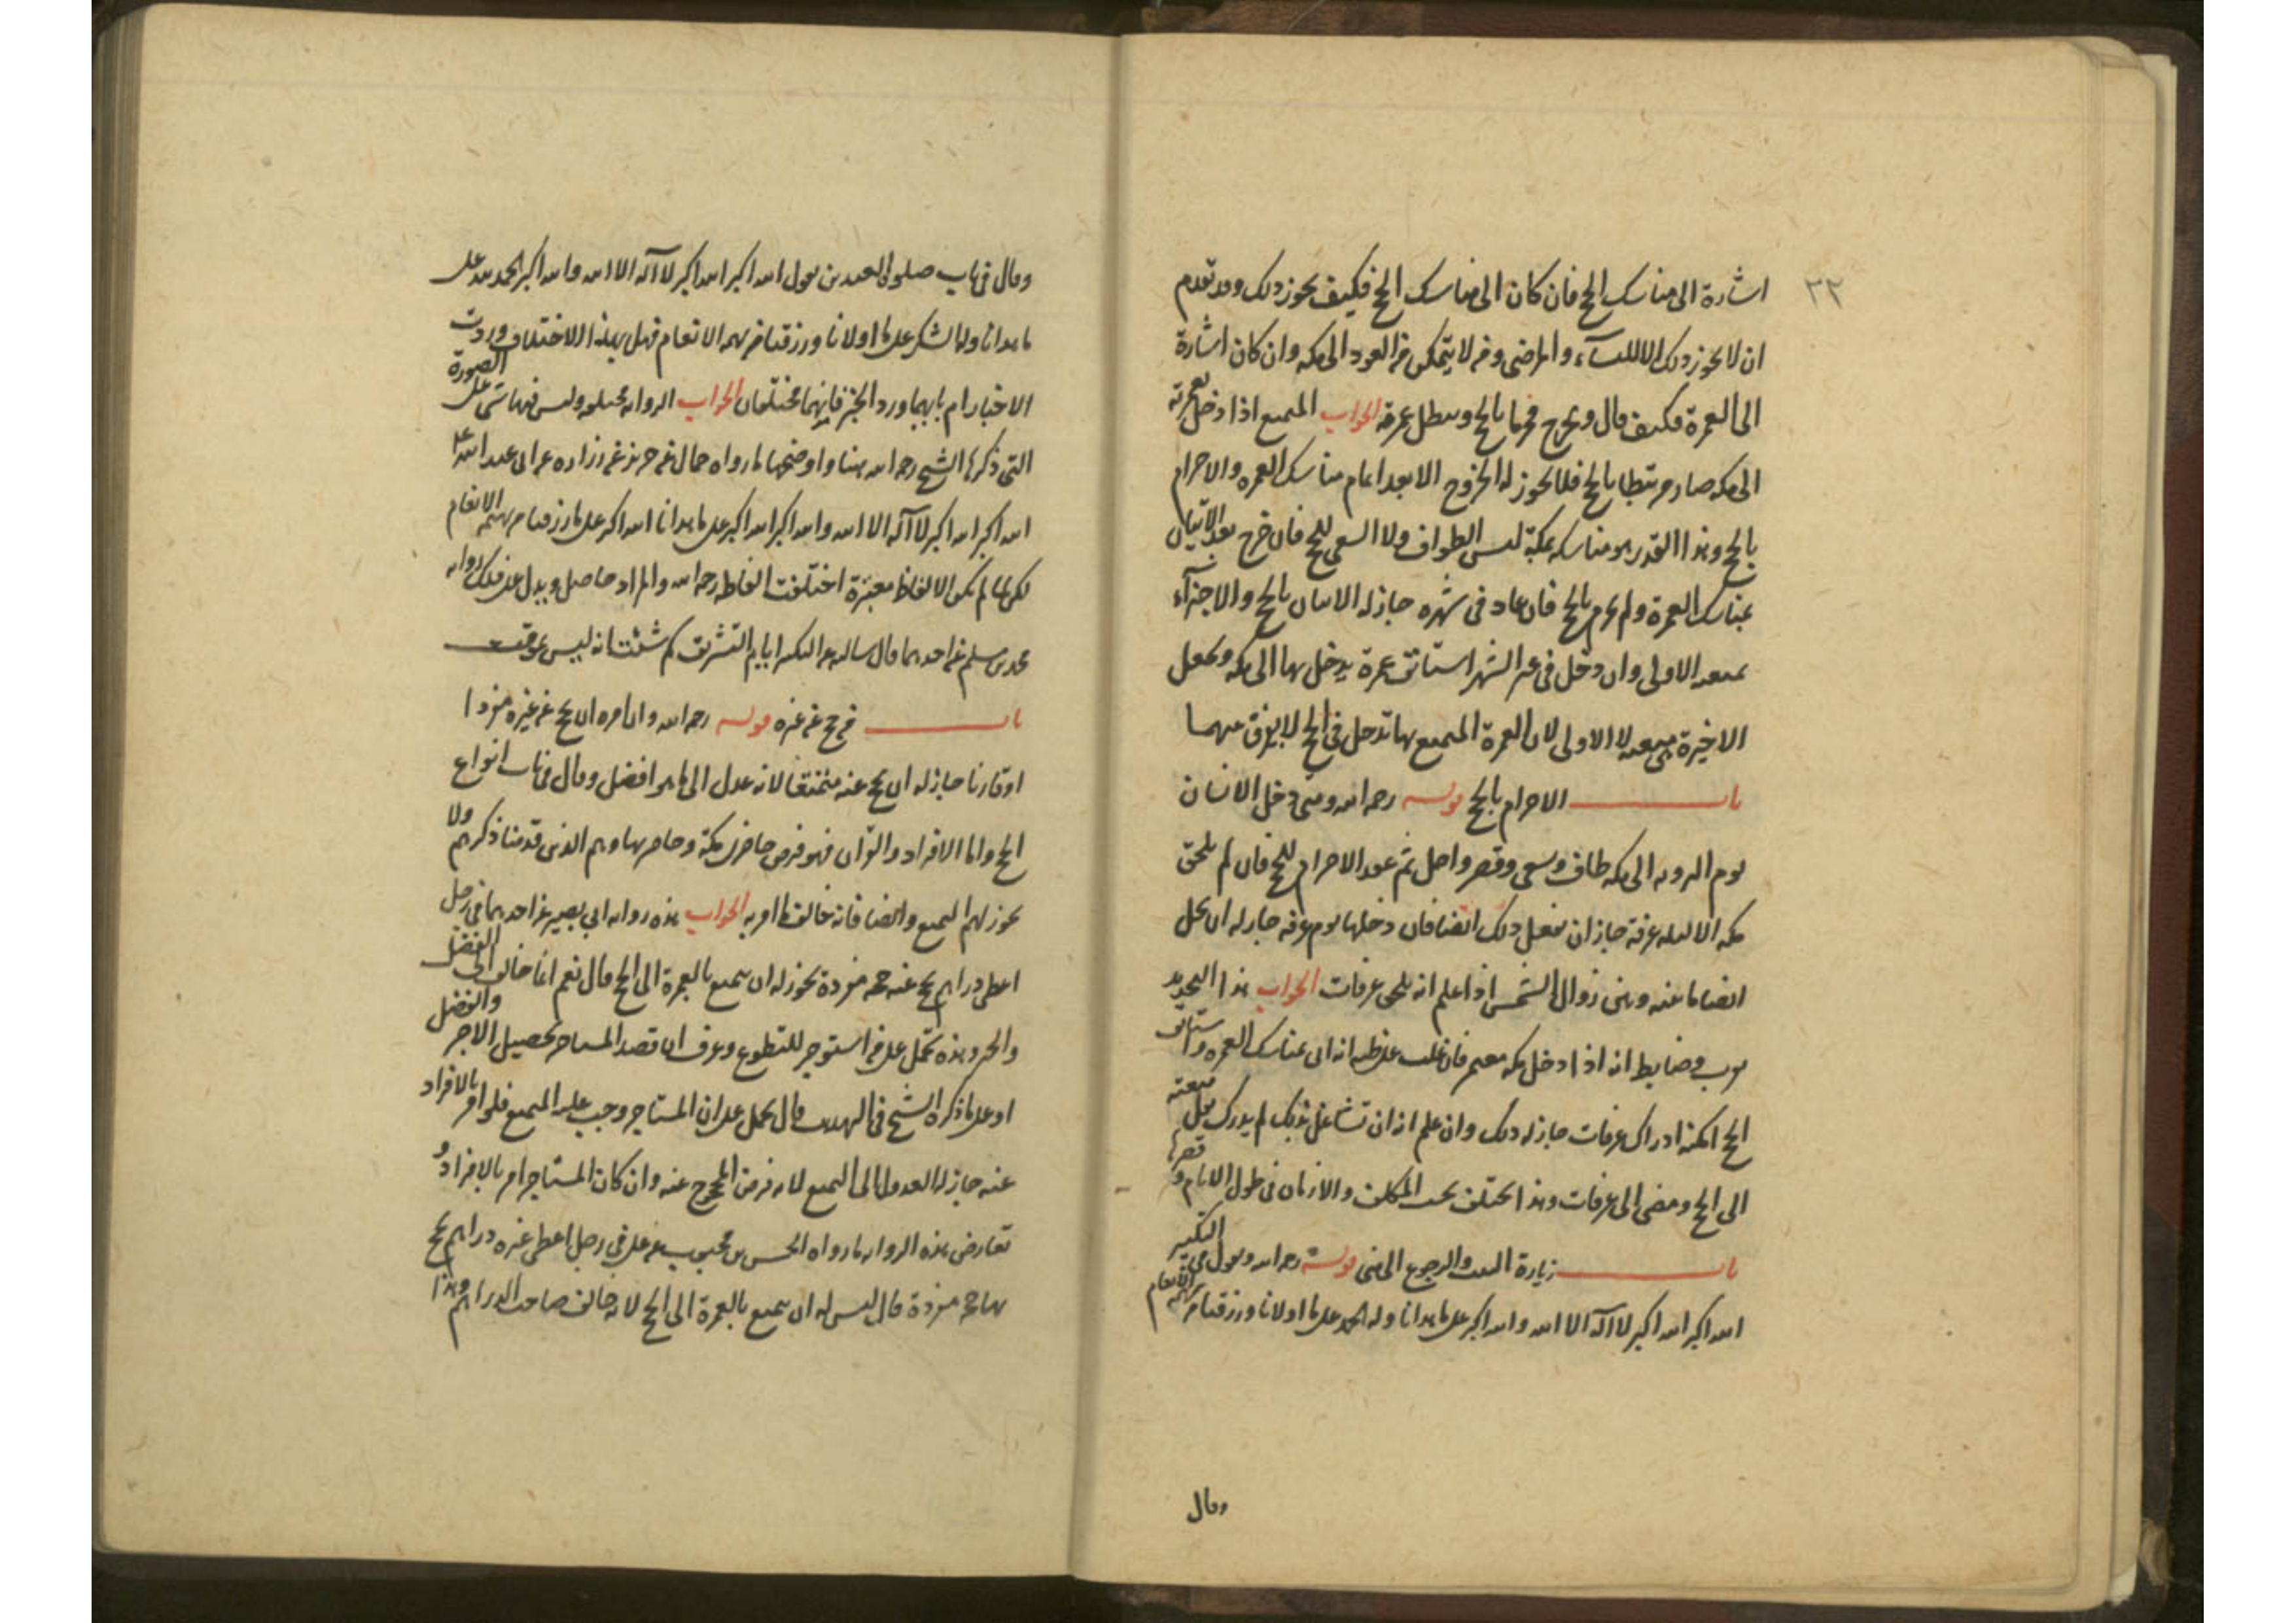 ٢٢
اشارة الى مناسك الحج فان كان الى مناسك الحج فكيف يجوز ذلك وقد تقدم
ان لا يجوز ذلك الا للنساء والمرضى ومن لا يتمكن من العود الى مكه وان كان اشارة
الى العمرة فكيف قال ويخرج محرما بالحج ويبطل عمرته الجواب المتمتع اذا دخل بعمرته
الى مكه صار مرتبطا بالحج فلا يجوز له الخروج الا بعد اتمام مناسك العمره والاحرام
بالحج وهذا القدر هو مناسكه بمكة ليس الطواف ولا السعى للحج فان خرج بعد الاتيان
بمناسك العمرة ولم يحرم بالحج فان عاد فى شهره جاز له الاتيان بالحج والاجتزاء
بمتعته الاولى وان دخل فى غير الشهر استانف عمرة يدخل بها الى مكه وتجعل
الاخيرة متعته لا الاولى لان العمرة المتمتع بها تدخل فى الحج لا يفرق بينهما
باب الاحرام بالحج قوله رحمه الله ومتى دخل الانسان
يوم الترويه الى مكه طاف وسعى وقصر واحل ثم عقد الاحرام للحج فان لم يلحق
مكه الا ليله عرفة جاز ان يفعل ذلك ايضا فان دخلها يوم عرفه جاز له ان يحل
ايضا ما بينه وبين زوال الشمس اذا علم انه يلحق عرفات الجواب هذا التحديد
تقريب وضابط انه اذا دخل مكه معتمر فان غلب على ظنه انه اتى بمناسك العمره واستانف
الحج امكنه ادراك عرفات جاز له ذلك وان علم انه ان تشاغل بذلك لم يدرك نقل متعته
الى الحج ومضى الى عرفات وهذا يختلف بحسب المكلف والازمان فى طول الايام وقصرها
باب زيارة البيت والرجوع الى منى قوله رحمه الله ويقول فى التكبير
الله اكبر الله اكبر لا اله الا الله والله اكبر على ما هدانا وله الحمد على ما اولانا ورزقنا من بهيمة الانعام
وقال
وقال فى باب صلوة العيدين يقول الله اكبر الله اكبر لا اله الا الله والله اكبر الحمد لله على
ما هدانا وله الشكر على ما اولانا ورزقنا من بهيمة الانعام فهل بهذا الاختلاف وردت
الاخبار ام بايهما ورد الخبر فانهما مختلفان الجواب الروايه مختلفه وليس فيها شى على الصورة
التى ذكرها الشيخ رحمه الله هنا واوضحها ما رواه حماد عن حريز عن زراره عن ابى عبد الله ع
الله اكبر الله اكبر لا اله الا الله والله اكبر الله اكبر على ما هدانا الله اكبر على ما رزقنا من بهيمة الانعام
لكن لما لم تكن الالفاظ معتبرة اختلفت الفاظه رحمه الله والمراد حاصل ويدل على ذلك روايه
محمد بن مسلم عن احدهما قال سالته عن التكبير ايام التشريق كم شئت انه ليس بموقت
باب من حج عن غيره قوله رحمه الله وان امره ان يحج عن غيره مفردا
او قارنا جاز له ان يحج عنه متمتعا لانه عدل الى ما هو افضل وقال فى باب انواع
الحج واما الافراد والقران فهو فرض حاضرى مكة وحاضريها وهم الذين قدمنا ذكرهم ولا
يجوز لهم التمتع وايضا فانه خالف ما امر به الجواب هذه روايه ابى بصير عن احدهما فى رجل
اعطى دراهم يحج عنه حجه مفردة يجوز له ان يتمتع بالعمرة الى الحج قال نعم انما خالف الى الفضل
والخير وهذه تحمل على من استوجر للتطوع وعرف ان قصد المستاجر تحصيل الاجر والفضل
او على ما ذكره الشيخ فى التهذيب قال يحمل على ان المستاجر وجب عليه التمتع فلو امر بالافراد
عنه جاز له العدول الى التمتع لانه فرض المحجوج عنه وان كان المستاجر امر بالافراد و
تعارض هذه الروايه ما رواه الحسن بن محبوب عن على فى رجل اعطى غيره دراهم يحج
بها حجه مفردة قال ليس له ان يتمتع بالعمرة الى الحج لانه خالف صاحب الدراهم وهذا